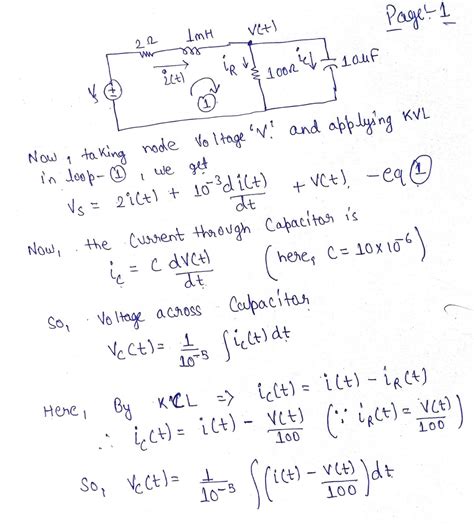 Page:-1
2Ω 1mH V(t)
Vs i(t) iR 100Ω ic 10uF
1
Now, taking node Voltage 'V'. and applying KVL
in loop-①, we get
Vs = 2i(t) + 10^-3 di(t)/dt + V(t) -eq ①
Now, the Current through Capacitor is
ic = C dV(t)/dt (here, C = 10×10^-6)
So, Voltage across Capacitor
Vc(t) = 1/10^-5 ∫ ic(t) dt
Here, By KCL => ic(t) = i(t) - iR(t)
∴ ic(t) = i(t) - V(t)/100 (∵ iR(t) = V(t)/100)
So, Vc(t) = 1/10^-5 ∫ (i(t) - V(t)/100) dt